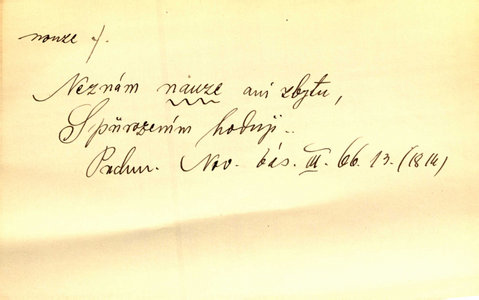 nouze f.
Neznám náuze ani zbytu,
S přirozením hoduji..
Puchm. Nov. bás. III. 66. 13. (1814)